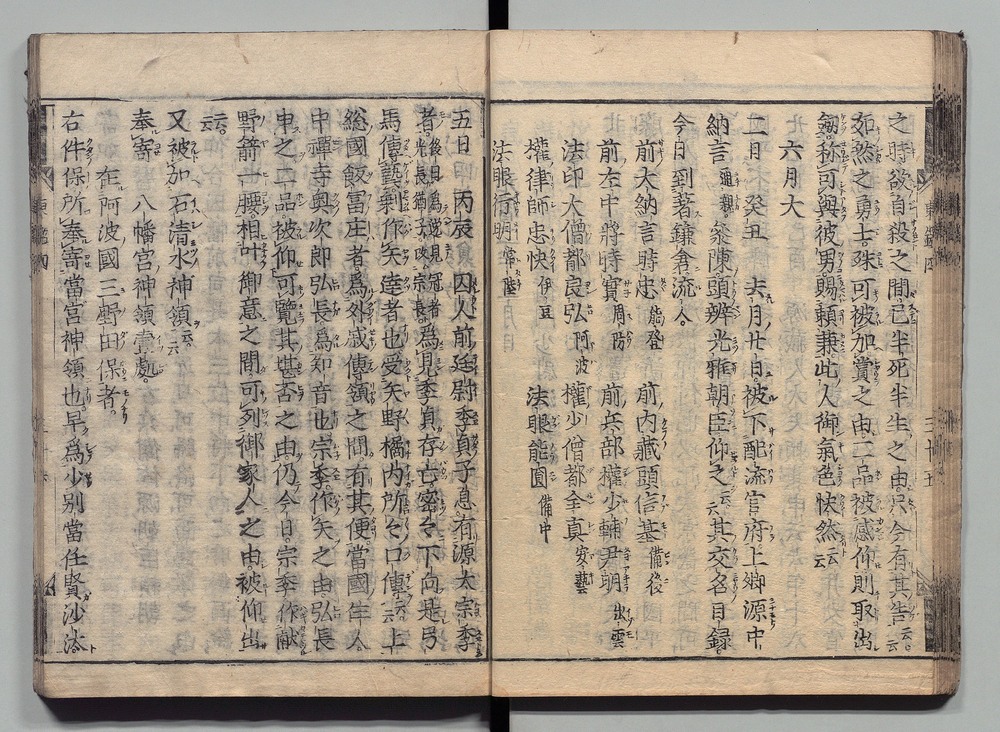 之時欲自殺之間已半死半生之由只今有其告云云
茹然之勇士殊可被加賞之由二品被感仰則取出御
劔称可與彼男賜頼兼此人御氣色快然云云
六月大
二日 癸丑 去月廿日被下配流官府上卿源中
納言 參陳頭辨光雅朝臣仰之云云其交名目録
今日到著鎌倉流人
前大納言時忠能登 前内藏頭信基備後
前左中將時實周防 前兵部權少輔尹明出雲
法印大僧都良弘阿波 權少僧都全真安藝
權律師忠快伊豆 法眼能圓備中
法眼行明常陸
五日 丙辰 囚人前廷尉季貞子息有源太宗季
者後日為宗長 為見季貞存亡密々下向是弓
馬傳藝剰作矢達者也受矢野橘内所々口傳云云上
総國飯富庄者爲外戚傳領之間有其便當國住人
中禪寺奥次郎弘長爲知音也宗季作矢之由弘長
申之二品被仰可覧其堪否之由仍今日宗季作献
野箭一腰相叶御意之間可列御家人之由被仰出
云云
又被加石清水神領云云
奉寄 八幡宮神領壹處
在阿波國三野田保者
右件保所奉寄當宮神領也早爲少別當任賢沙汰